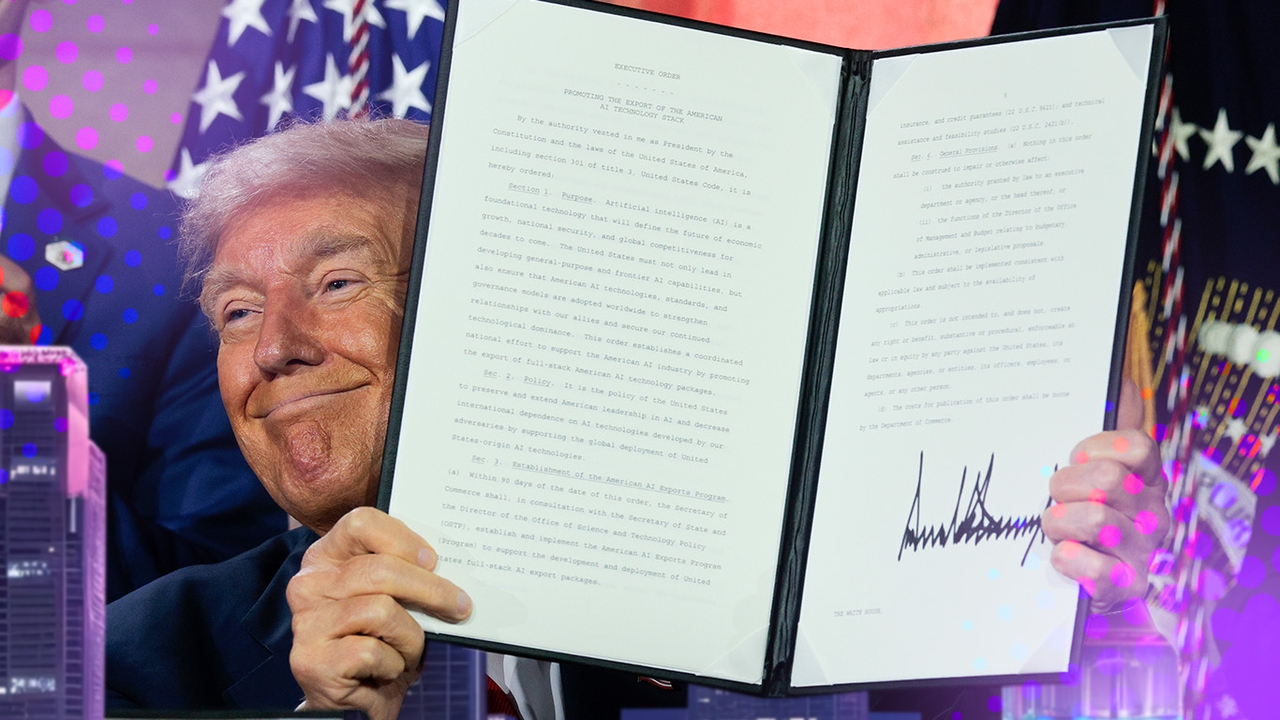 EXECUTIVE ORDER
- - - - - - -
PROMOTING THE EXPORT OF THE AMERICAN
AI TECHNOLOGY STACK
By the authority vested in me as President by the
Constitution and the laws of the United States of America,
including section 301 of title 3, United States Code, it is
hereby ordered:
Section 1. Purpose. Artificial intelligence (AI) is a
foundational technology that will define the future of economic
growth, national security, and global competitiveness for
decades to come. The United States must not only lead in
developing general-purpose and frontier AI capabilities, but
also ensure that American AI technologies, standards, and
governance models are adopted worldwide to strengthen
relationships with our allies and secure our continued
technological dominance. This order establishes a coordinated
national effort to support the American AI industry by promoting
the export of full-stack American AI technology packages.
Sec. 2. Policy. It is the policy of the United States
to preserve and extend American leadership in AI and decrease
international dependence on AI technologies developed by our
adversaries by supporting the global deployment of United
States-origin AI technologies.
Sec. 3. Establishment of the American AI Exports Program.
(a) Within 90 days of the date of this order, the Secretary of
Commerce shall, in consultation with the Secretary of State and
the Director of the Office of Science and Technology Policy
(OSTP), establish and implement the American AI Exports Program
(Program) to support the development and deployment of United
States full-stack AI export packages.
insurance, and credit guarantees (22 U.S.C. 9621), and technical
assistance and feasibility studies (22 U.S.C. 2421(b)).
Sec. 6. General Provisions. (a) Nothing in this order
shall be construed to impair or otherwise affect:
(i) the authority granted by law to an executive
department or agency, or the head thereof; or
(ii) the functions of the Director of the Office
of Management and Budget relating to budgetary,
administrative, or legislative proposals.
(b) This order shall be implemented consistent with
applicable law and subject to the availability of
appropriations.
(c) This order is not intended to, and does not, create
any right or benefit, substantive or procedural, enforceable at
law or in equity by any party against the United States, its
departments, agencies, or entities, its officers, employees, or
agents, or any other person.
(d) The costs for publication of this order shall be borne
by the Department of Commerce.
THE WHITE HOUSE,